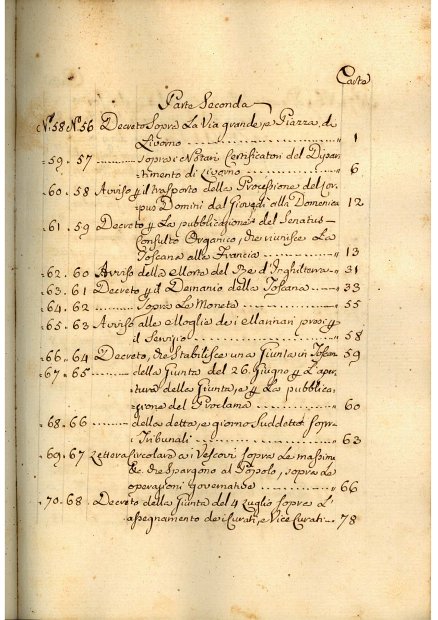 Carte
Parte Seconda
N.º 58 N.º 56 Decreto Sopra La Via grande, e Piazza di
Livorno 1
59. 57 Sopra i Notari Certificatori del Dipar
timento di Livorno 6
60. 58 Avviso p il trasporto della Processione del Cor
pus Domini dal Giovedì alla Domenica 12
61. 59 Decreto p La pubblicazione del Senatus=
Consulto Organico, che riunisce La
Toscana alla Francia 13
62. 60 Avviso della Morte del Re d'Inghilterra 31
63. 61 Decreto p il Demanio della Toscana 33
64. 62 Sopra Le Monete 55
65. 63 Avviso alle Moglie dei Marinari presi p
il Servizio 58
66. 64 Decreto, che Stabilisce una Giunta in Toscana 59
67. 65 della Giunta del 26. Giugno p L'aper
tura della Giunta, e p La pubblica
zione del Proclama 60
68. 66 della detta, e giorno Suddetto sopra i
Tribunali 63
69. 67 Lettera Circolare a i Vescovi Sopra Le massime
che Spargono al Popolo, sopra Le
operazioni governative 66
70. 68 Decreto della Giunta del 4 Luglio Sopra L'
assegnamento dei Curati, e Vice Curati 78